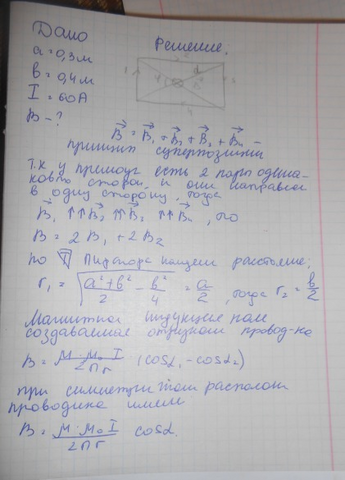 Дано
Решение.
a = 0,3 м
b = 0,4 м
I = 60 A
B - ?
B⃗ = B⃗₁ + B⃗₂ + B⃗₃ + B⃗ₙ -
принцип суперпозиции
т.к у прямоуг есть 2 пары одина-
ковых сторон, и они направлен
в одну сторону, тогда
B⃗₁ ↑↑ B⃗₂ ↑↑ B⃗₃ ↑↑ B⃗ₙ, то
B = 2 B₁ + 2 B₂
по Т Пифагора найдем расстояние:
r₁ = √(a² + b² / 2 - b² / 4) = a/2, тогда r₂ = b/2
Магнитное индукцие поле
создаваемое отрезком провод-ка
B = μ · μ₀ I / 2πr (cos α₁ - cos α₂)
при симметричном располож
проводника имеем
B = μ · μ₀ I / 2πr cos α.